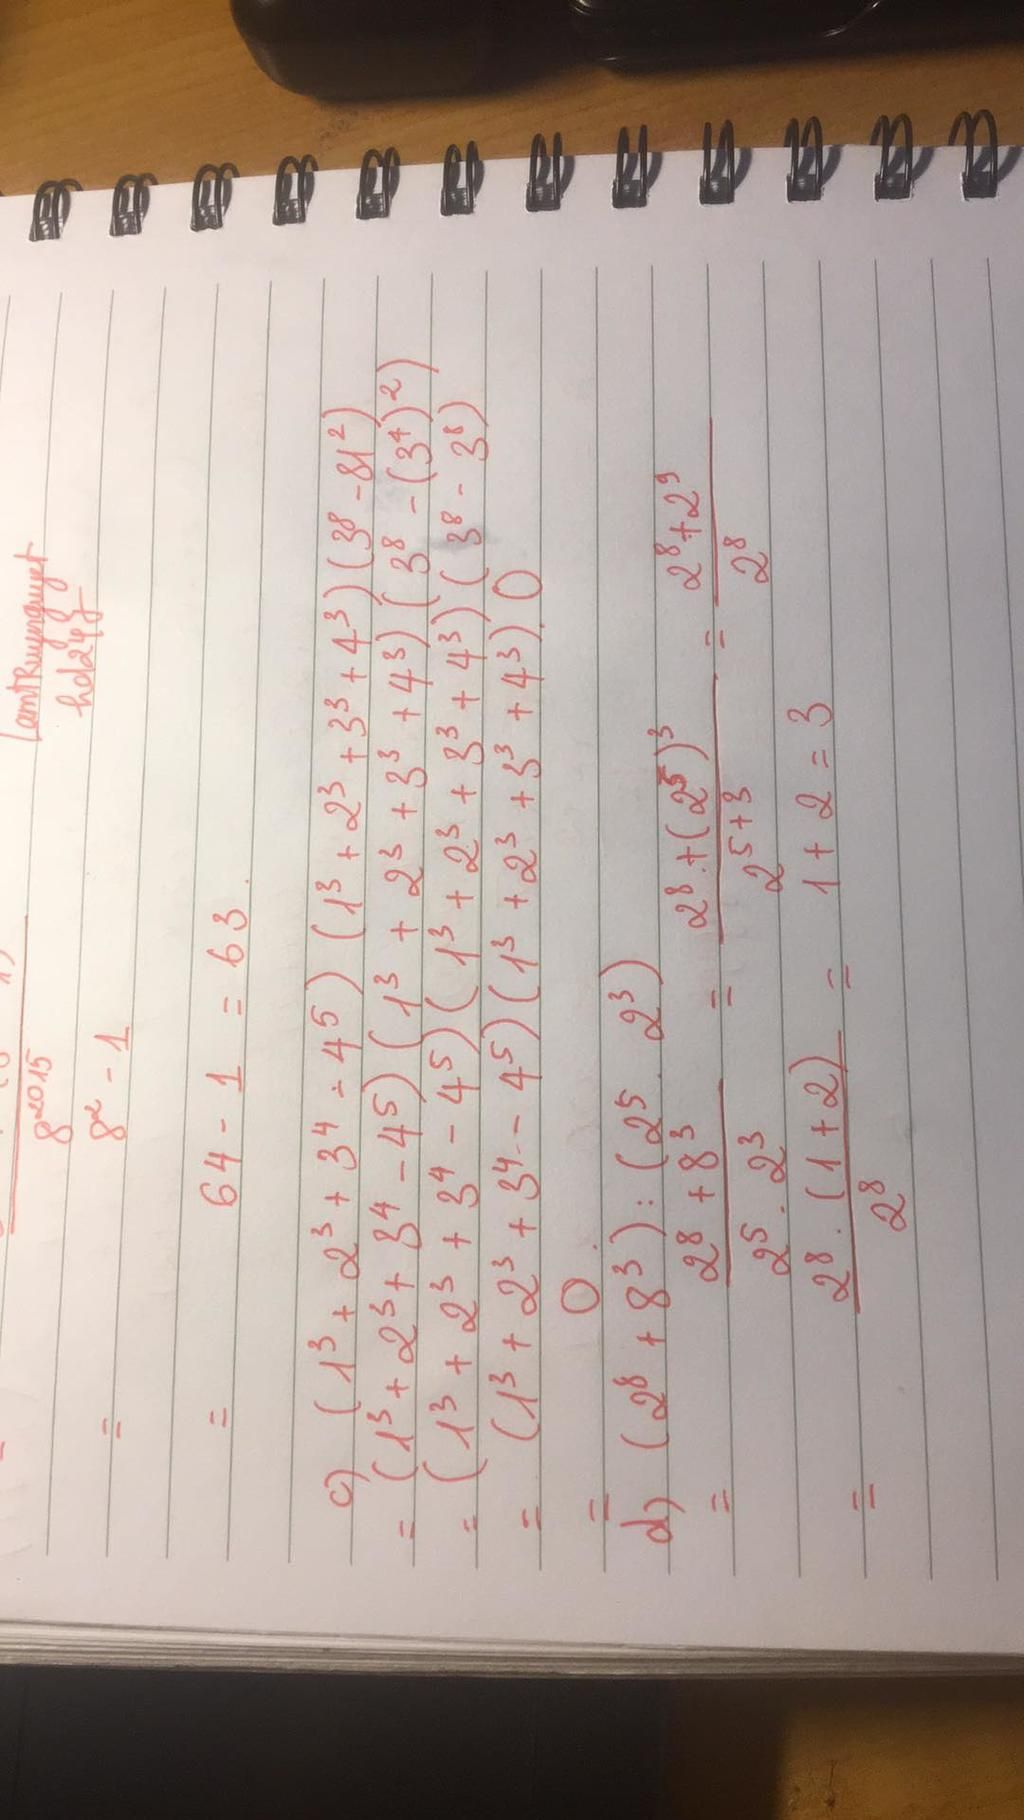 lamtruyenguyet
hd24h
8²⁰¹⁵
= 8² - 1
= 64 - 1 = 63.
c) (1³ + 2³ + 3⁴ - 4⁵) (1³ + 2³ + 3³ + 4³) (3⁸ - 81²)
= (1³ + 2³ + 3⁴ - 4⁵) (1³ + 2³ + 3³ + 4³) (3⁸ - (3⁴)²)
= (1³ + 2³ + 3⁴ - 4⁵) (1³ + 2³ + 3³ + 4³) (3⁸ - 3⁸)
= (1³ + 2³ + 3⁴ - 4⁵) (1³ + 2³ + 3³ + 4³) . 0
= 0.
d) (2⁸ + 8³) : (2⁵ . 2³)
= 2⁸ + 8³ / 2⁵ . 2³ = 2⁸ + (2³)³ / 2⁵⁺³ = 2⁸ + 2⁹ / 2⁸
= 2⁸ . (1 + 2) / 2⁸ = 1 + 2 = 3